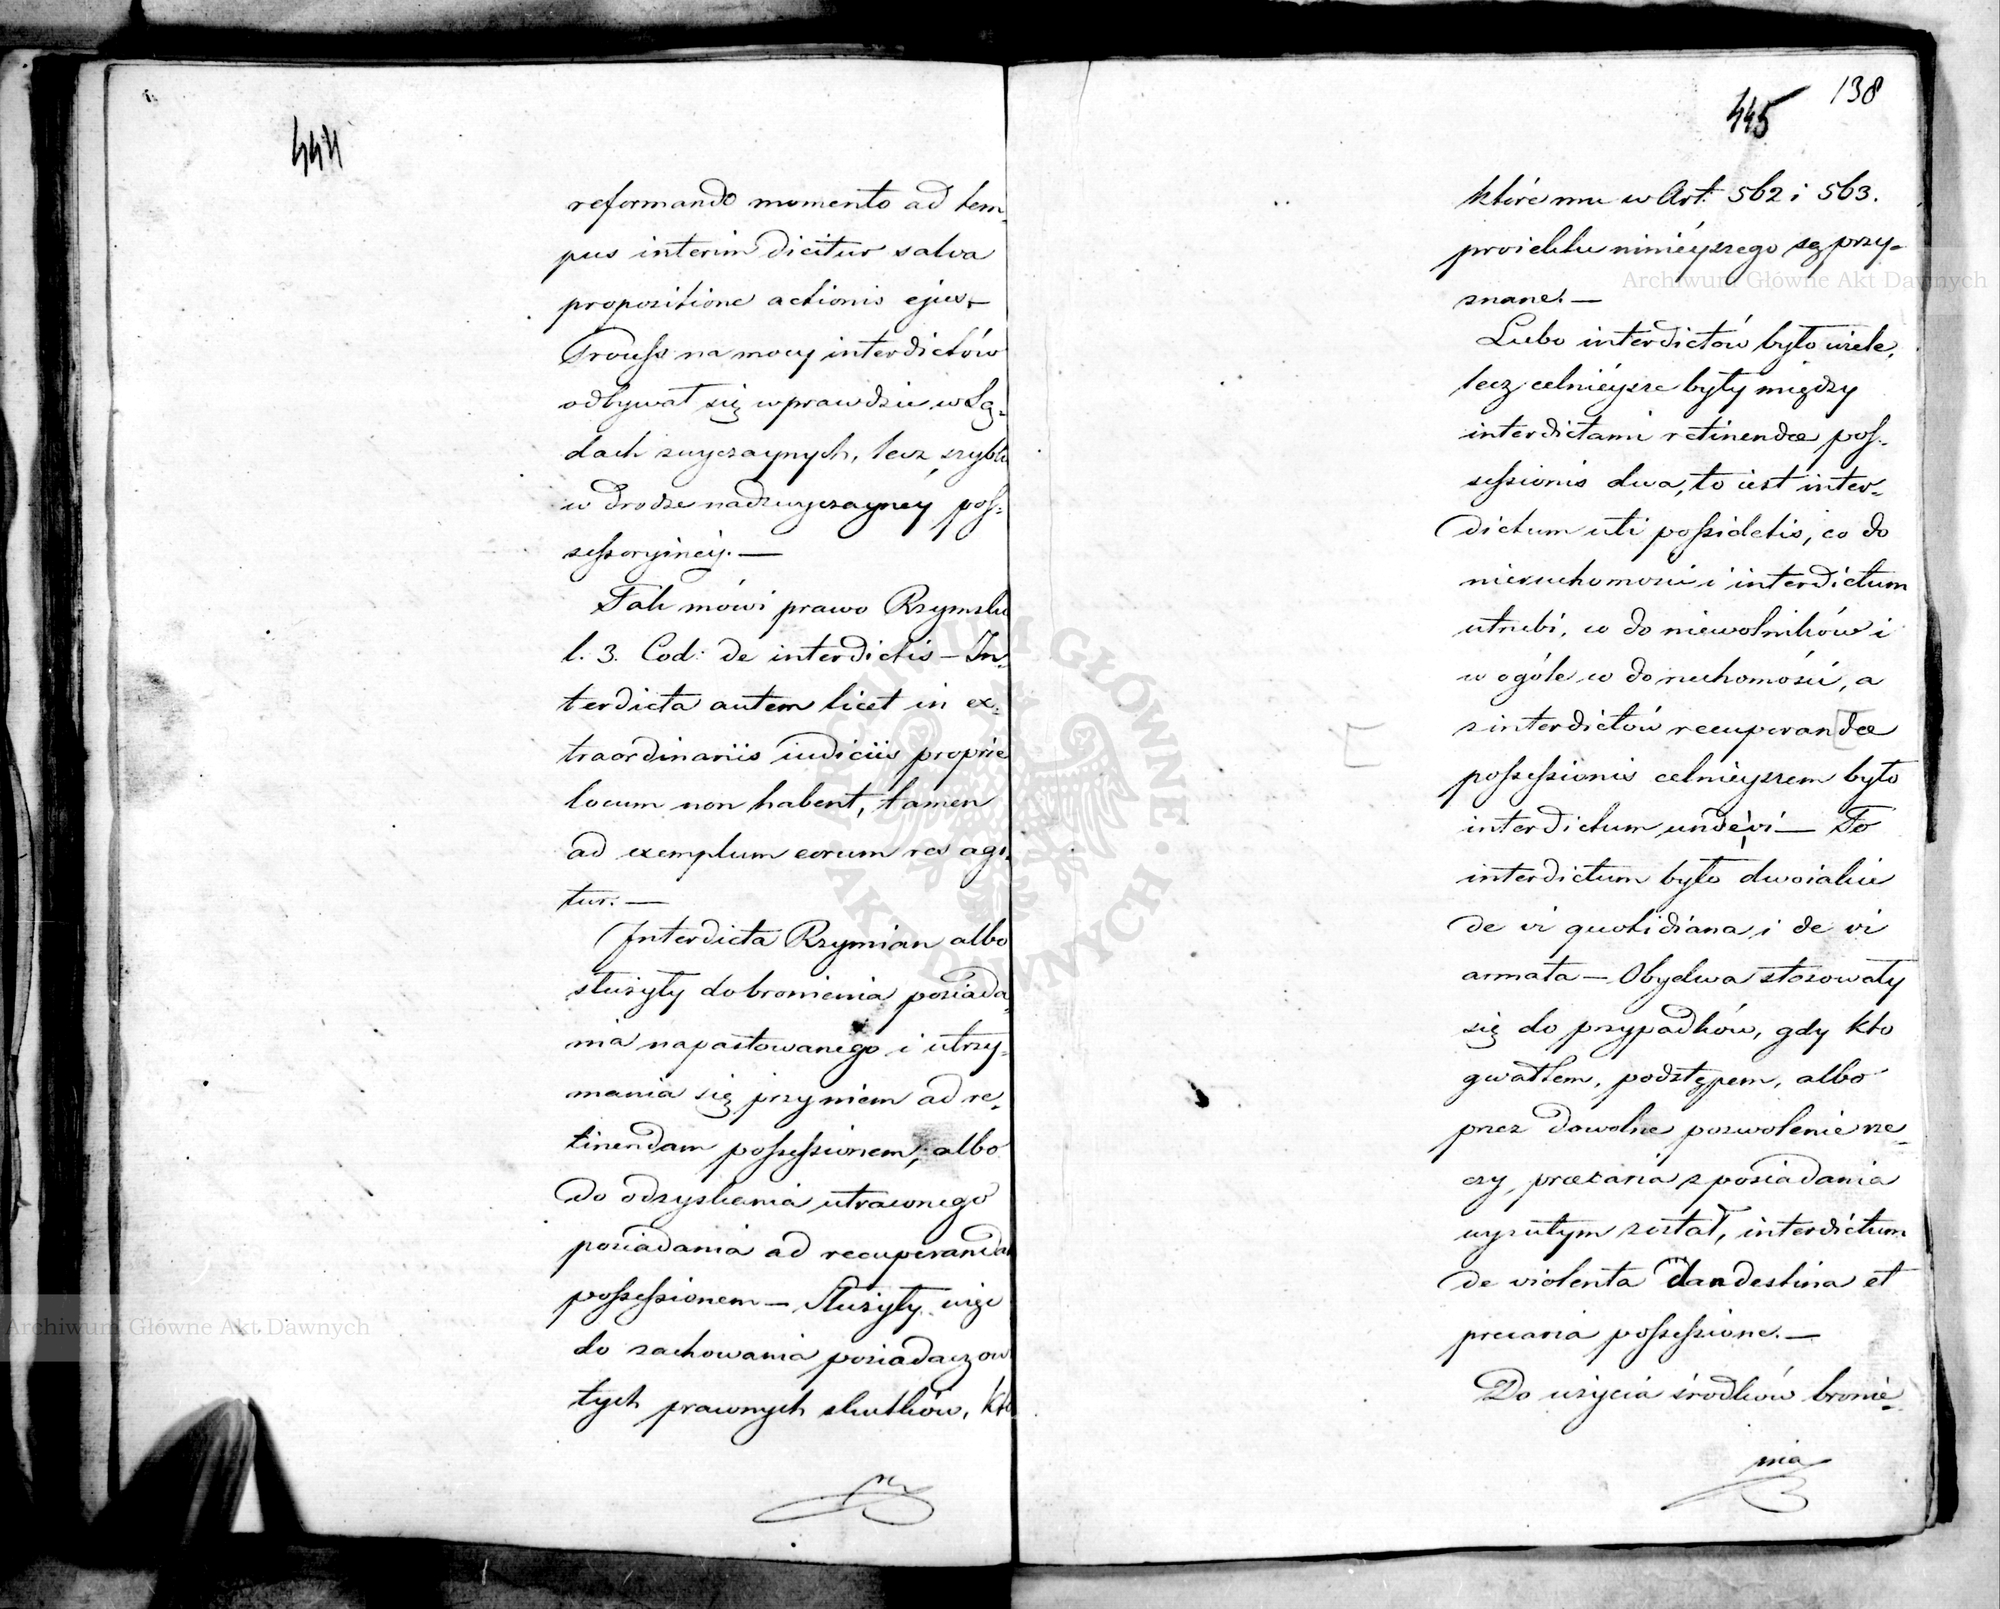 444
reformando momento ad tem-
pus interim dicitur salva
propositione actionis ejus –
Process na mocy interdictów
odbywał się wprawdzie w Są-
dach zwyczaynych, lecz szybko
w drodze nadzwyczaynéy pos-
sessoryinéy. —
Tak mówi prawo Rzymskie
l. 3. Cod: de interdictis – In-
terdicta autem licet in ex-
traordinariis iudiciis proprie
locum non habent, tamen
ad exemplum eorum res agi-
tur. —
Interdicta Rzymian albo
służyły do bronienia posiada-
nia napastowanego i utrzy-
mania się przy niem ad re-
tinendam possessionem, albo
do odzyskania utraconego
posiadania ad recuperandam
possessionem — Służyły więc
do zachowania posiadaczow
tych prawnych skutków, któ
138
445
któremu w Art. 562 i 563.
proiektu ninieyszego są przy-
znane. —
Lubo interdictów było wiele,
lecz celniéysze były między
interdictami retinendæ pos-
sessionis dwa, to iest inter-
dictum uti possidetis, co do
nieruchomości i interdictum
utrubi, co do niewolników i
w ogóle co do ruchomości, a
z interdictów recuperandæ
possessionis celnieyszem było
interdictum unde vi — To
interdictum było dwoiakie
de vi quotidiana i de vi
armata — Obydwa stosowały
się do przypadków, gdy kto
gwałtem, podstępem, albo
przez dowolne pozwolenie rze-
czy, precaria z posiadania
wyzutym został, interdictum
de violenta clandestina et
precaria possessione. —
Do użycia środków bronie-
nia
Archiwum Główne Akt Dawnych
Archiwum Główne Akt Dawnych
ARCHIWUM GŁÓWNE AKT DAWNYCH